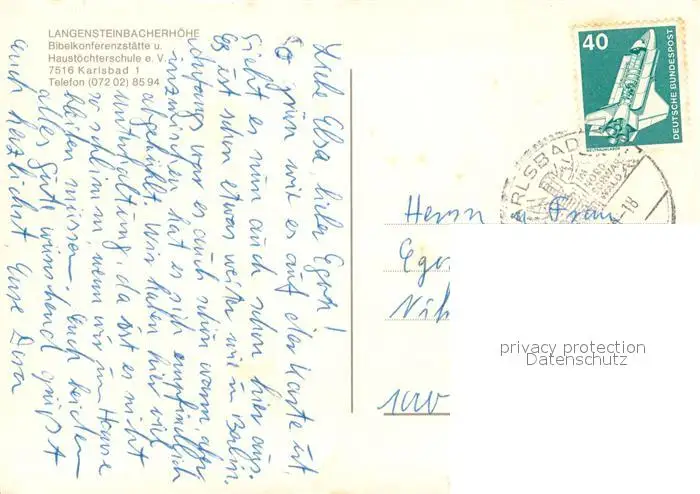 LANGENSTEINBACHERHÖHE
Bibelkonferenzstätte u.
Haustöchterschule e. V.
7516 Karlsbad 1
Telefon (072 02) 85 94
Liebe Elsa, lieber Egon!
So grün wie es auf der Karte ist,
sieht es nun auch schon hier aus.
Es ist schon etwas weiter wie in Berlin.
Anfangs war es auch schön warm, aber
inzwischen hat es sich empfindlich
abgekühlt. Wir haben hier viel
Unterhaltung, da ist es nicht
so schlimm, wenn wir im Hause
bleiben müssen. Euch beiden
alles Gute wünschend grüßt
Euch herzlichst Eure Dora
40
DEUTSCHE BUNDESPOST
WELTRAUMLABOR
KARLSBAD
IM
NORD
SCHWARZ
WALD
-18
Herrn u. Frau
Ego
privacy protection
Datenschutz
1000